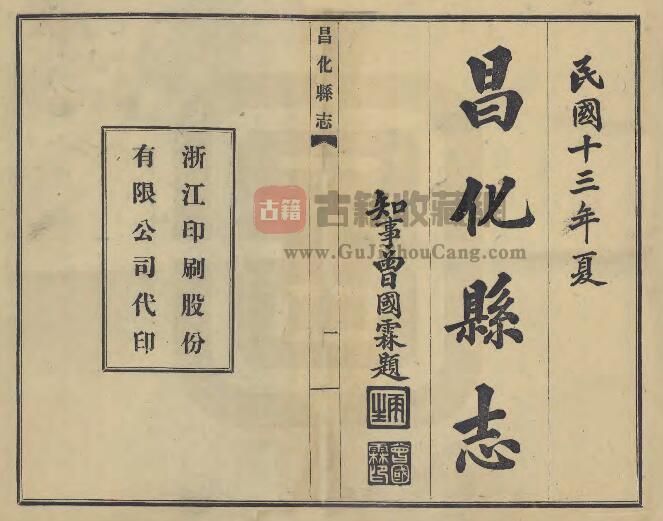 民國十三年夏
昌化縣志
知事曾國霖題
曾國霖印
昌化縣志
一
浙江印刷股份
有限公司代印
古籍
古籍收藏網
www.GuJiShouCang.com